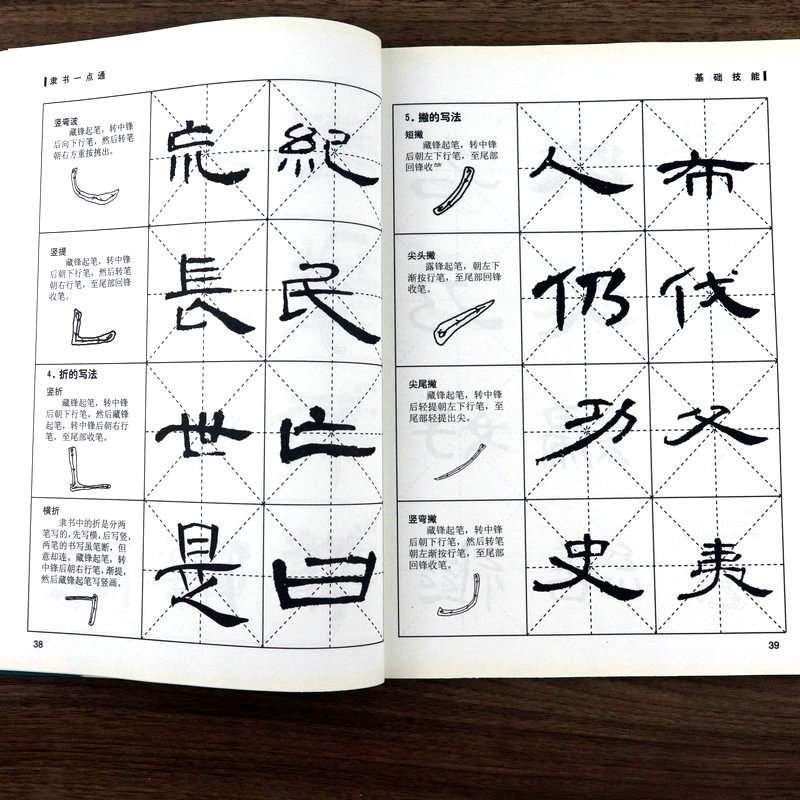 隶书一点通
竖弯波
藏锋起笔，转中锋
后向下行笔，然后转笔
朝右方重按挑出。
紀
竖提
藏锋起笔，转中锋
后朝下行笔，然后转笔
朝右行笔，至尾部回锋
收笔。
長
民
4．折的写法
竖折
藏锋起笔，转中锋
后朝下行笔，然后藏锋
起笔，转中锋后朝右行
笔，至尾部收笔。
世
亡
横折
隶书中的折是分两
笔写的，先写横，后写竖，
两笔的书写虽笔断，但
意却连。藏锋起笔，转
中锋后朝右行笔，渐提，
然后藏锋起笔写竖画。
是
曰
38
基础技能
5．撇的写法
短撇
藏锋起笔，转中锋
后朝左下行笔，至尾部
回锋收笔
人
布
尖头撇
露锋起笔，朝左下
渐按行笔，至尾部回锋
收笔。
仍
伐
尖尾撇
藏锋起笔，转中锋
后轻提朝左下行笔，至
尾部轻提出尖。
功
父
竖弯撇
藏锋起笔，转中锋
后朝下行笔，然后转笔
朝左渐按行笔，至尾部
回锋收笔。
史
夷
39